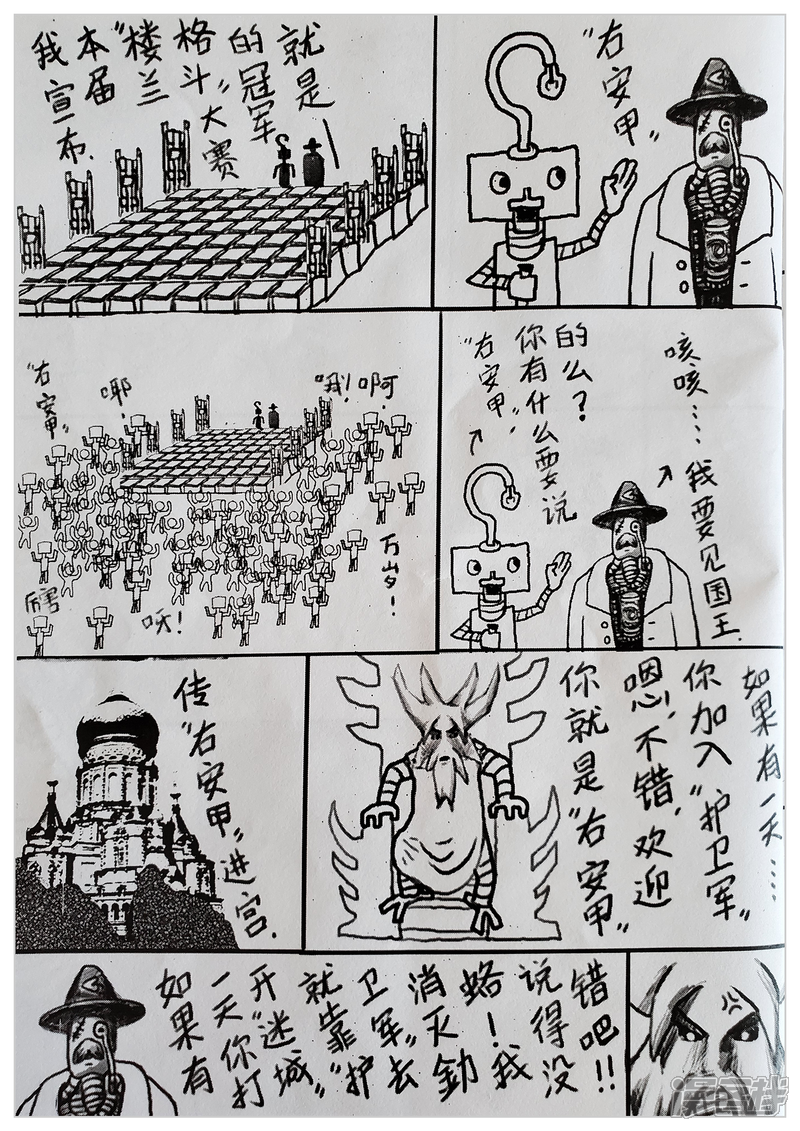 我宣布.
本届
“楼兰
格斗”大赛
的冠军
就是
“右安甲”
“右安甲”
耶!
哦!
啊
厉害
呀!
万岁!
“右安甲”,
你有什么要说
的么?
咳咳……
我要见国王.
传“右安甲”进宫.
你就是“右安甲”
嗯,不错,欢迎
你加入“护卫军”
如果有一天……
如果有
一天你打
开“迷城”
就靠“护
卫军”去
消灭釛
蛒!我
说得没
错吧!!